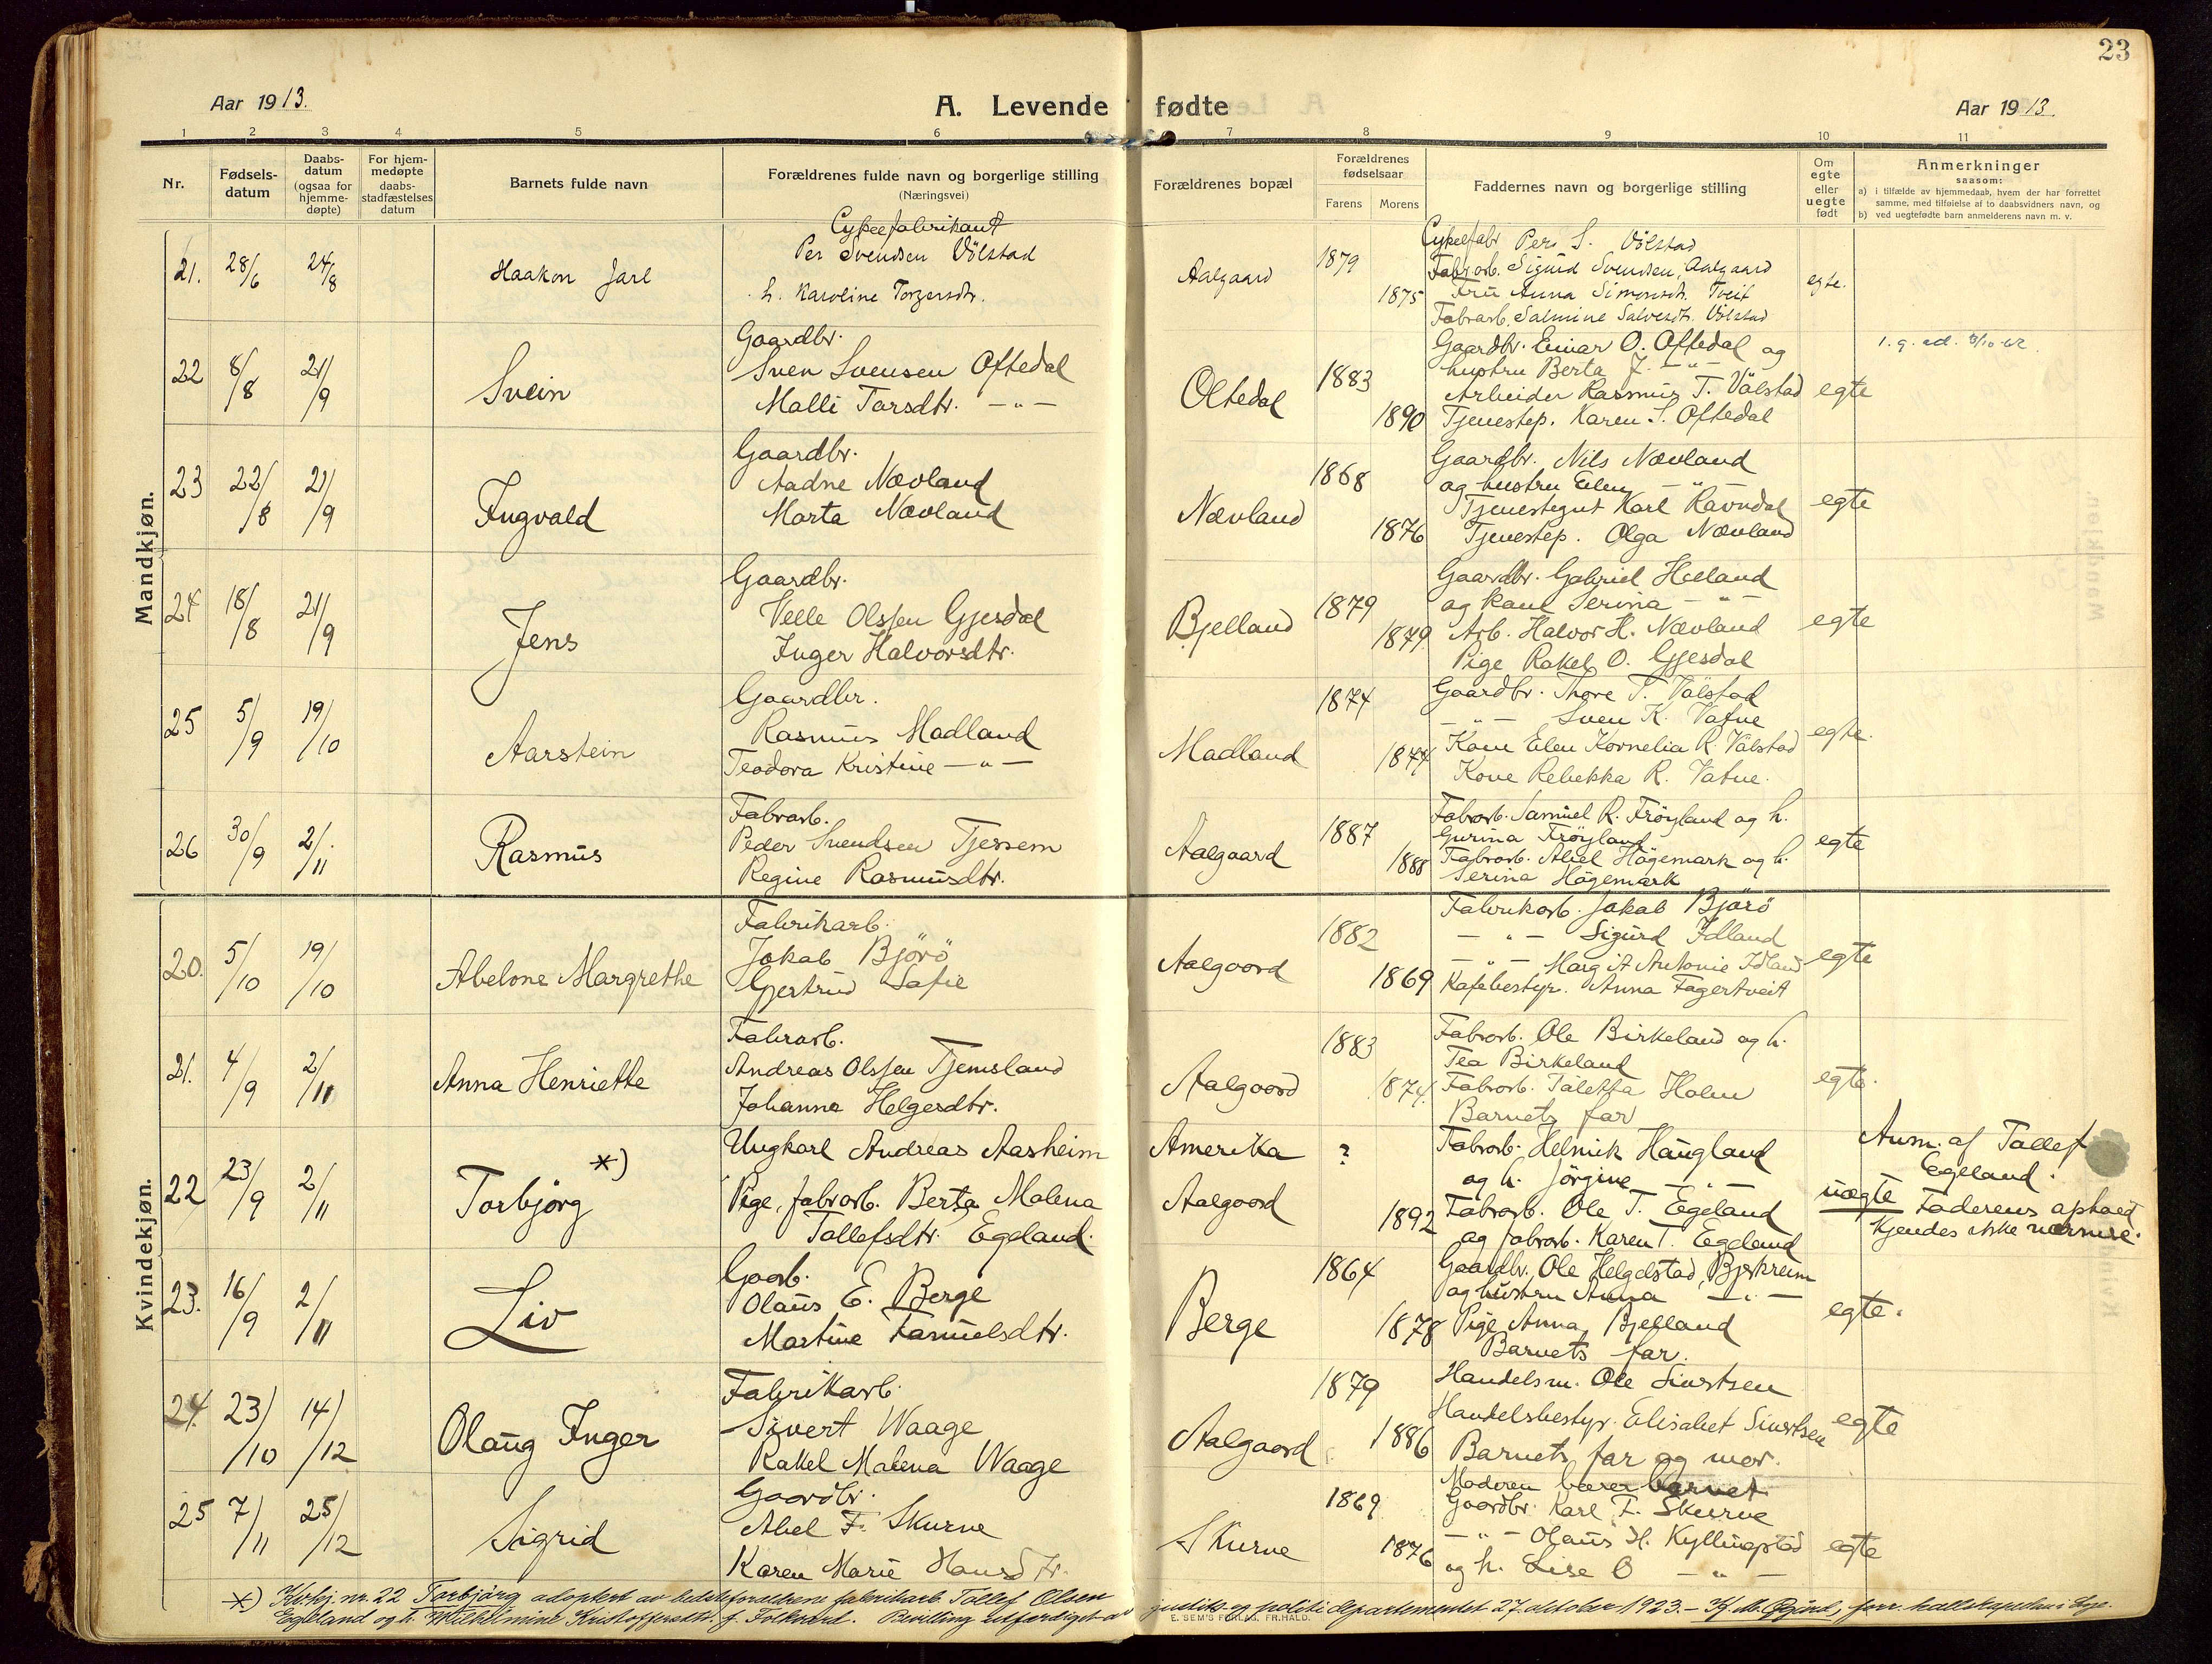 23
Aar 1913.
A. Levende fødte
Aar 1913.
1 2 3 4 5 6 7 8 9 10 11
Nr.
Fødsels-
datum
Daabs-
datum
(ogsaa for
hjemme-
døpte)
For hjem-
medøpte
daabs-
stadfæstelses
datum
Barnets fulde navn
Forældrenes fulde navn og borgerlige stilling
(Næringsvei)
Forældrenes bopæl
Forældrenes
fødselsaar
Farens Morens
Faddernes navn og borgerlige stilling
Om
egte
eller
uegte
født
Anmerkninger
saasom:
a) i tilfælde av hjemmedaab, hvem der har forrettet
samme, med tilføielse af to daabsvidners navn, og
b) ved uegtefødt barn anmelderens navn m. v.
Mandkjøn.
21. 28/6 24/8 Haakon Jarl
Per Svendsen Völstad
h. Karoline Torgersdtr.
Aalgaard 1879 1875
Per S. Völstad
Fabrarb. Sigurd Svendsen, Aalgaard
Fru Anna Simonsdt. Tveit
Fabrarb. Salmine Salvesdt. Völstad
egte.
22 8/8 21/9 Svein
Gaardbr.
Sven Svensen Oftedal
Malli Tarsdtr. —"—
Oltedal 1883 1890
Gaardbr. Einar O. Oftedal og
hustru Berta J. —"—
Arbeider Rasmus T. Välstad
Tjenestep. Karen S. Oftedal
egte
23 22/8 21/9 Ingvald
Gaardbr.
Aadne Nævland
Marta Nævland
Nævland 1868 1876
Gaardbr. Nils Nævland
og hustru Elen —"—
Tjenestegut Karl Ravndal
Tjenestep. Olga Nævland
egte
24 18/8 21/9 Jens
Gaardbr.
Velle Olssen Gjesdal
Inger Halvorsdtr.
Bjelland 1879 1879
Gaardbr. Gabriel Helland
og kone Serina —"—
Arb. Halvor H. Nævland
Pige Rakel O. Gjesdal
egte
25 5/9 19/10 Aarstein
Gaardbr.
Rasmus Madland
Teodora Kristine —"—
Madland 1874 1877
Gaardbr. Thore T. Välstad
—"— Sven K. Vatne
Kone Elen Kornelia R. Välstad
Kone Rebekka R. Vatne.
egte.
26 30/9 2/11 Rasmus
Fabrarb.
Peder Svendsen Tjessem
Regine Rasmusdtr.
Aalgaard 1887 1888
Fabrarb. Samuel R. Fröyland og h.
Gurina Fröyland
Fabrarb. Abel Högemark og h.
Serina Högemark
egte
Kvindekjøn.
20. 5/10 19/10 Abelone Margrethe
Fabrikarb.
Jakab Björö
Gjertrud Safie
Aalgaard 1882 1869
Fabrikarb. Jakab Björö
—"— Sigurd Idland
—"— Margit Antonie Idland
Kafebestyr. Anna Fagertveit
egte
21. 4/9 2/11 Anna Henriette
Fabrarb.
Andreas Olssen Tjemsland
Johanna Helgesdtr.
Aalgaard 1883 1874
Fabrarb. Ole Birkeland og h.
Tea Birkeland
Fabrarb. Taletta Holen
Barnets far
egte.
22 23/9 2/11 Torbjørg *)
Ungkarl Andreas Aasheim
Pige, fabrarb. Berta Malena
Tollefsdtr. Egeland.
Amerika ?
Aalgaard 1892
Fabrarb. Helmik Haugland
og h. Jörgine —"—
Fabrarb. Ole T. Egeland
og fabrarb. Karen T. Egeland
uegte
Anm. af Tallef
Egeland.
Faderens ophold
kjendes ikke nærmere.
23. 16/9 2/11 Liv
Gaarb.
Olaus E. Berge
Martine Samuelsdtr.
Berge 1864 1878
Gaardbr. Ole Helgelstad, Bjerkreim
og hustru Anna —"—
Pige Anna Bjelland
Barnets far.
egte.
24. 23/10 14/12 Olaug Inger
Fabrikarb.
Sivert Waage
Rakel Malena Waage
Aalgaard 1879 1886
Handelsm. Ole Sivertsen
Handelsbestyr. Elisabet Sivertsen
Barnets far og mor.
Moderen bærer barnet.
egte
25 7/11 25/12 Sigrid
Gaardbr.
Abel F. Skurve
Karen Marie Hansdtr.
Skurve 1869 1876
Gaardbr. Karl F. Skurve
—"— Olaus H. Kyllingstad
og h. Lise O —"—
egte
*) Kvkj. nr. 22 Torbjörg adoptert av bedsteforældrene fabrikarb. Tollef Olsen
Egeland og h. Wilhelmine Kristoffersdtr. f. Folkvord. Bevilling utfærdiget av justits og politidepartementet 27. oktober 1923.
E. SEM'S FORLAG, FR.HALD.